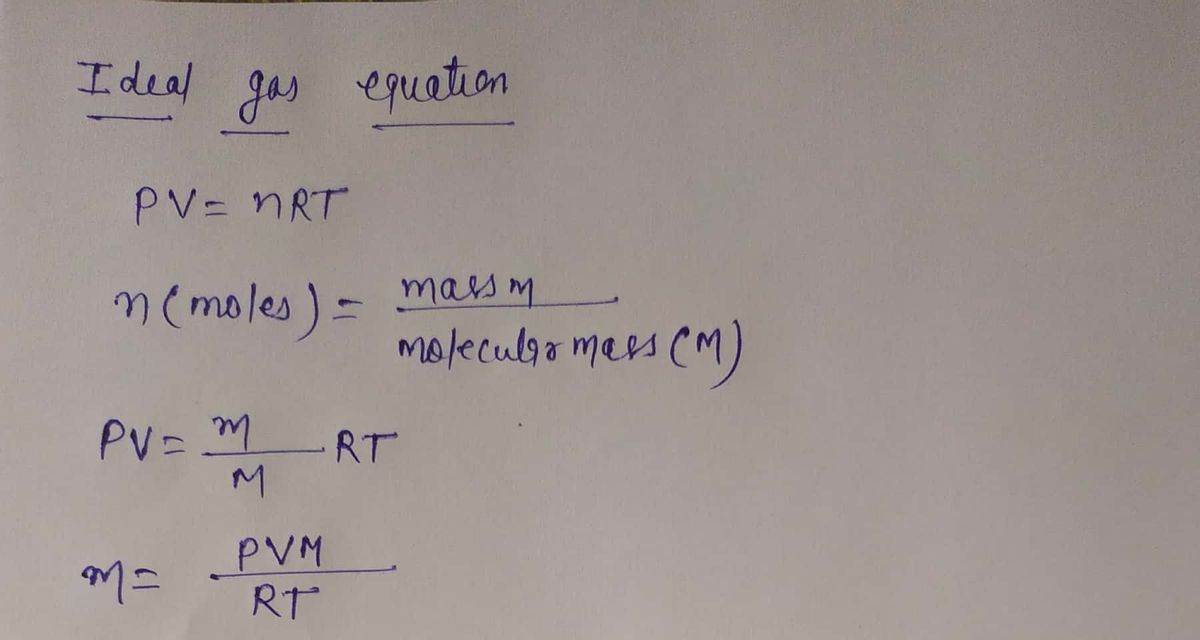 Ideal gas equation
PV = nRT
n (moles) = mass m / molecular mass (M)
PV = m / M RT
m = PVM / RT